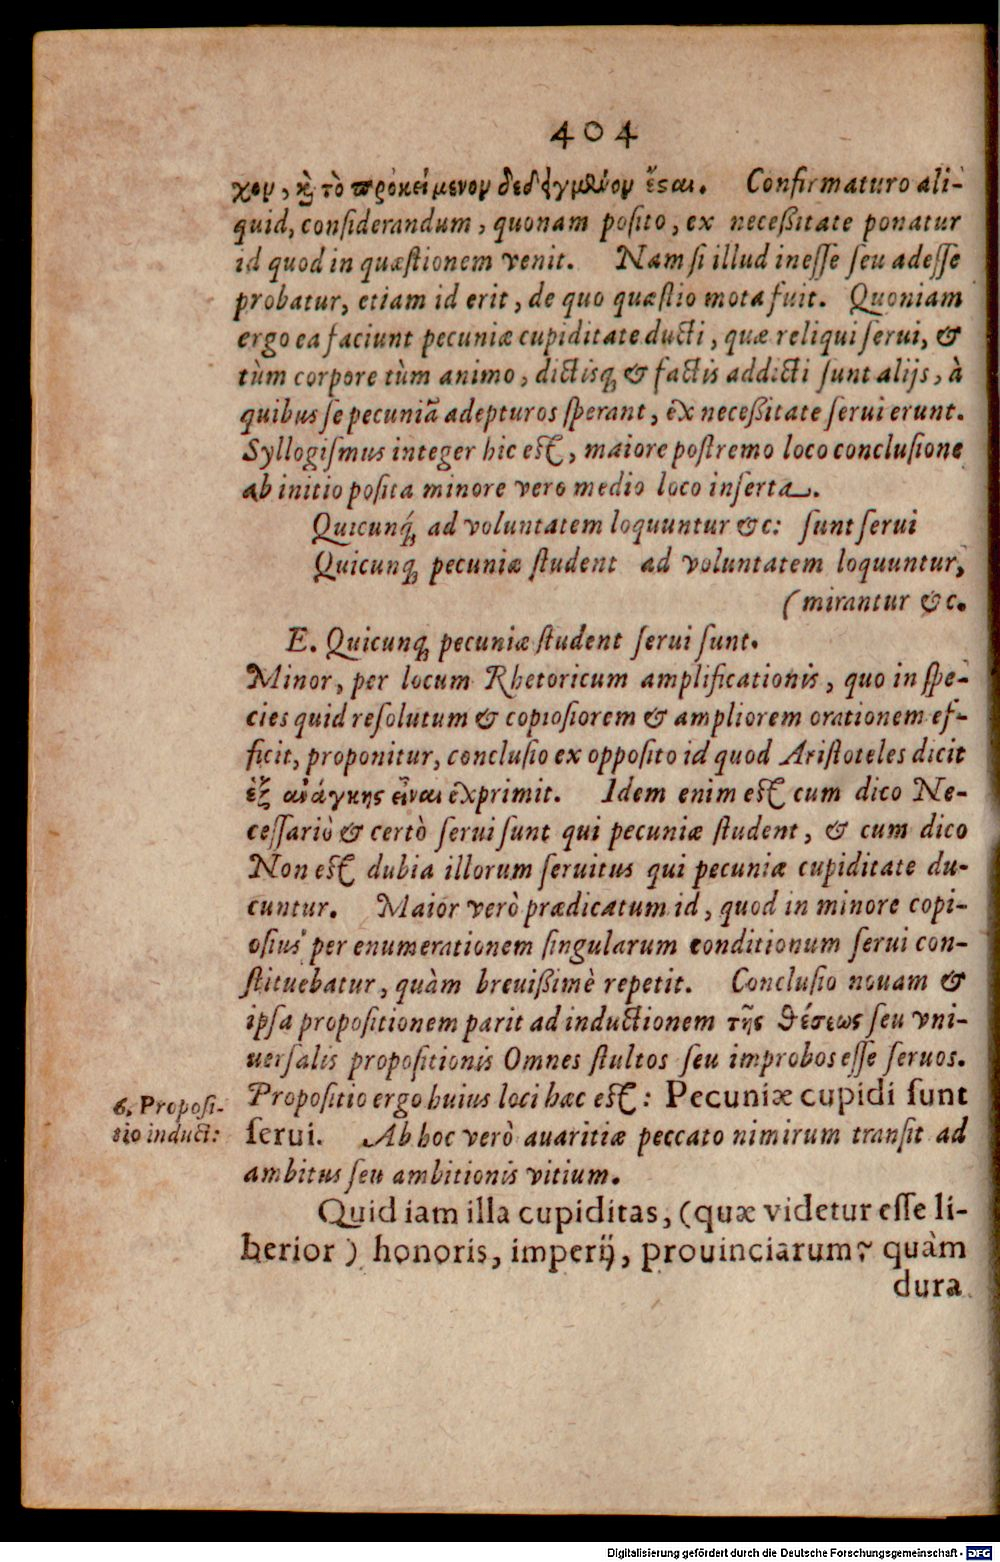 404
χον, καὶ τὸ προκείμενον δεδειγμένον ἔσαι. Confirmaturo ali-
quid, considerandum, quonam posito, ex neceßitate ponatur
id quod in quæstionem venit. Nam si illud inesse seu adesse
probatur, etiam id erit, de quo quæstio mota fuit. Quoniam
ergo ea faciunt pecuniæ cupiditate ducti, quæ reliqui serui, &
tùm corpore tùm animo, dictisq́; & factis addicti sunt alijs, à
quibus se pecuniã adepturos sperant, ex neceßitate serui erunt.
Syllogismus integer hic est, maiore postremo loco conclusione
ab initio posita minore vero medio loco inserta.
Quicunq́; ad voluntatem loquuntur &c: sunt serui
Quicunq; pecuniæ student ad voluntatem loquuntur,
(mirantur &c.
E. Quicunq; pecuniæ student serui sunt.
Minor, per locum Rhetoricum amplificationis, quo in spe-
cies quid resolutum & copiosiorem & ampliorem orationem ef-
ficit, proponitur, conclusio ex opposito id quod Aristoteles dicit
ἐξ ἀνάγκης εἶναι exprimit. Idem enim est cum dico Ne-
cessariò & certò serui sunt qui pecuniæ student, & cum dico
Non est dubia illorum seruitus qui pecuniæ cupiditate du-
cuntur. Maior verò prædicatum id, quod in minore copi-
osius per enumerationem singularum conditionum serui con-
stituebatur, quàm breuißimè repetit. Conclusio nouam &
ipsa propositionem parit ad inductionem τῆς θέσεως seu vni-
uersalis propositionis Omnes stultos seu improbos esse seruos.
Propositio ergo huius loci hæc est: Pecuniæ cupidi sunt
6. Proposi-
tio induct:
serui. Ab hoc verò auaritiæ peccato nimirum transit ad
ambitus seu ambitionis vitium.
Quid iam illa cupiditas, (quæ videtur esse li-
berior) honoris, imperij, prouinciarum? quàm
dura
Digitalisierung gefördert durch die Deutsche Forschungsgemeinschaft - DFG